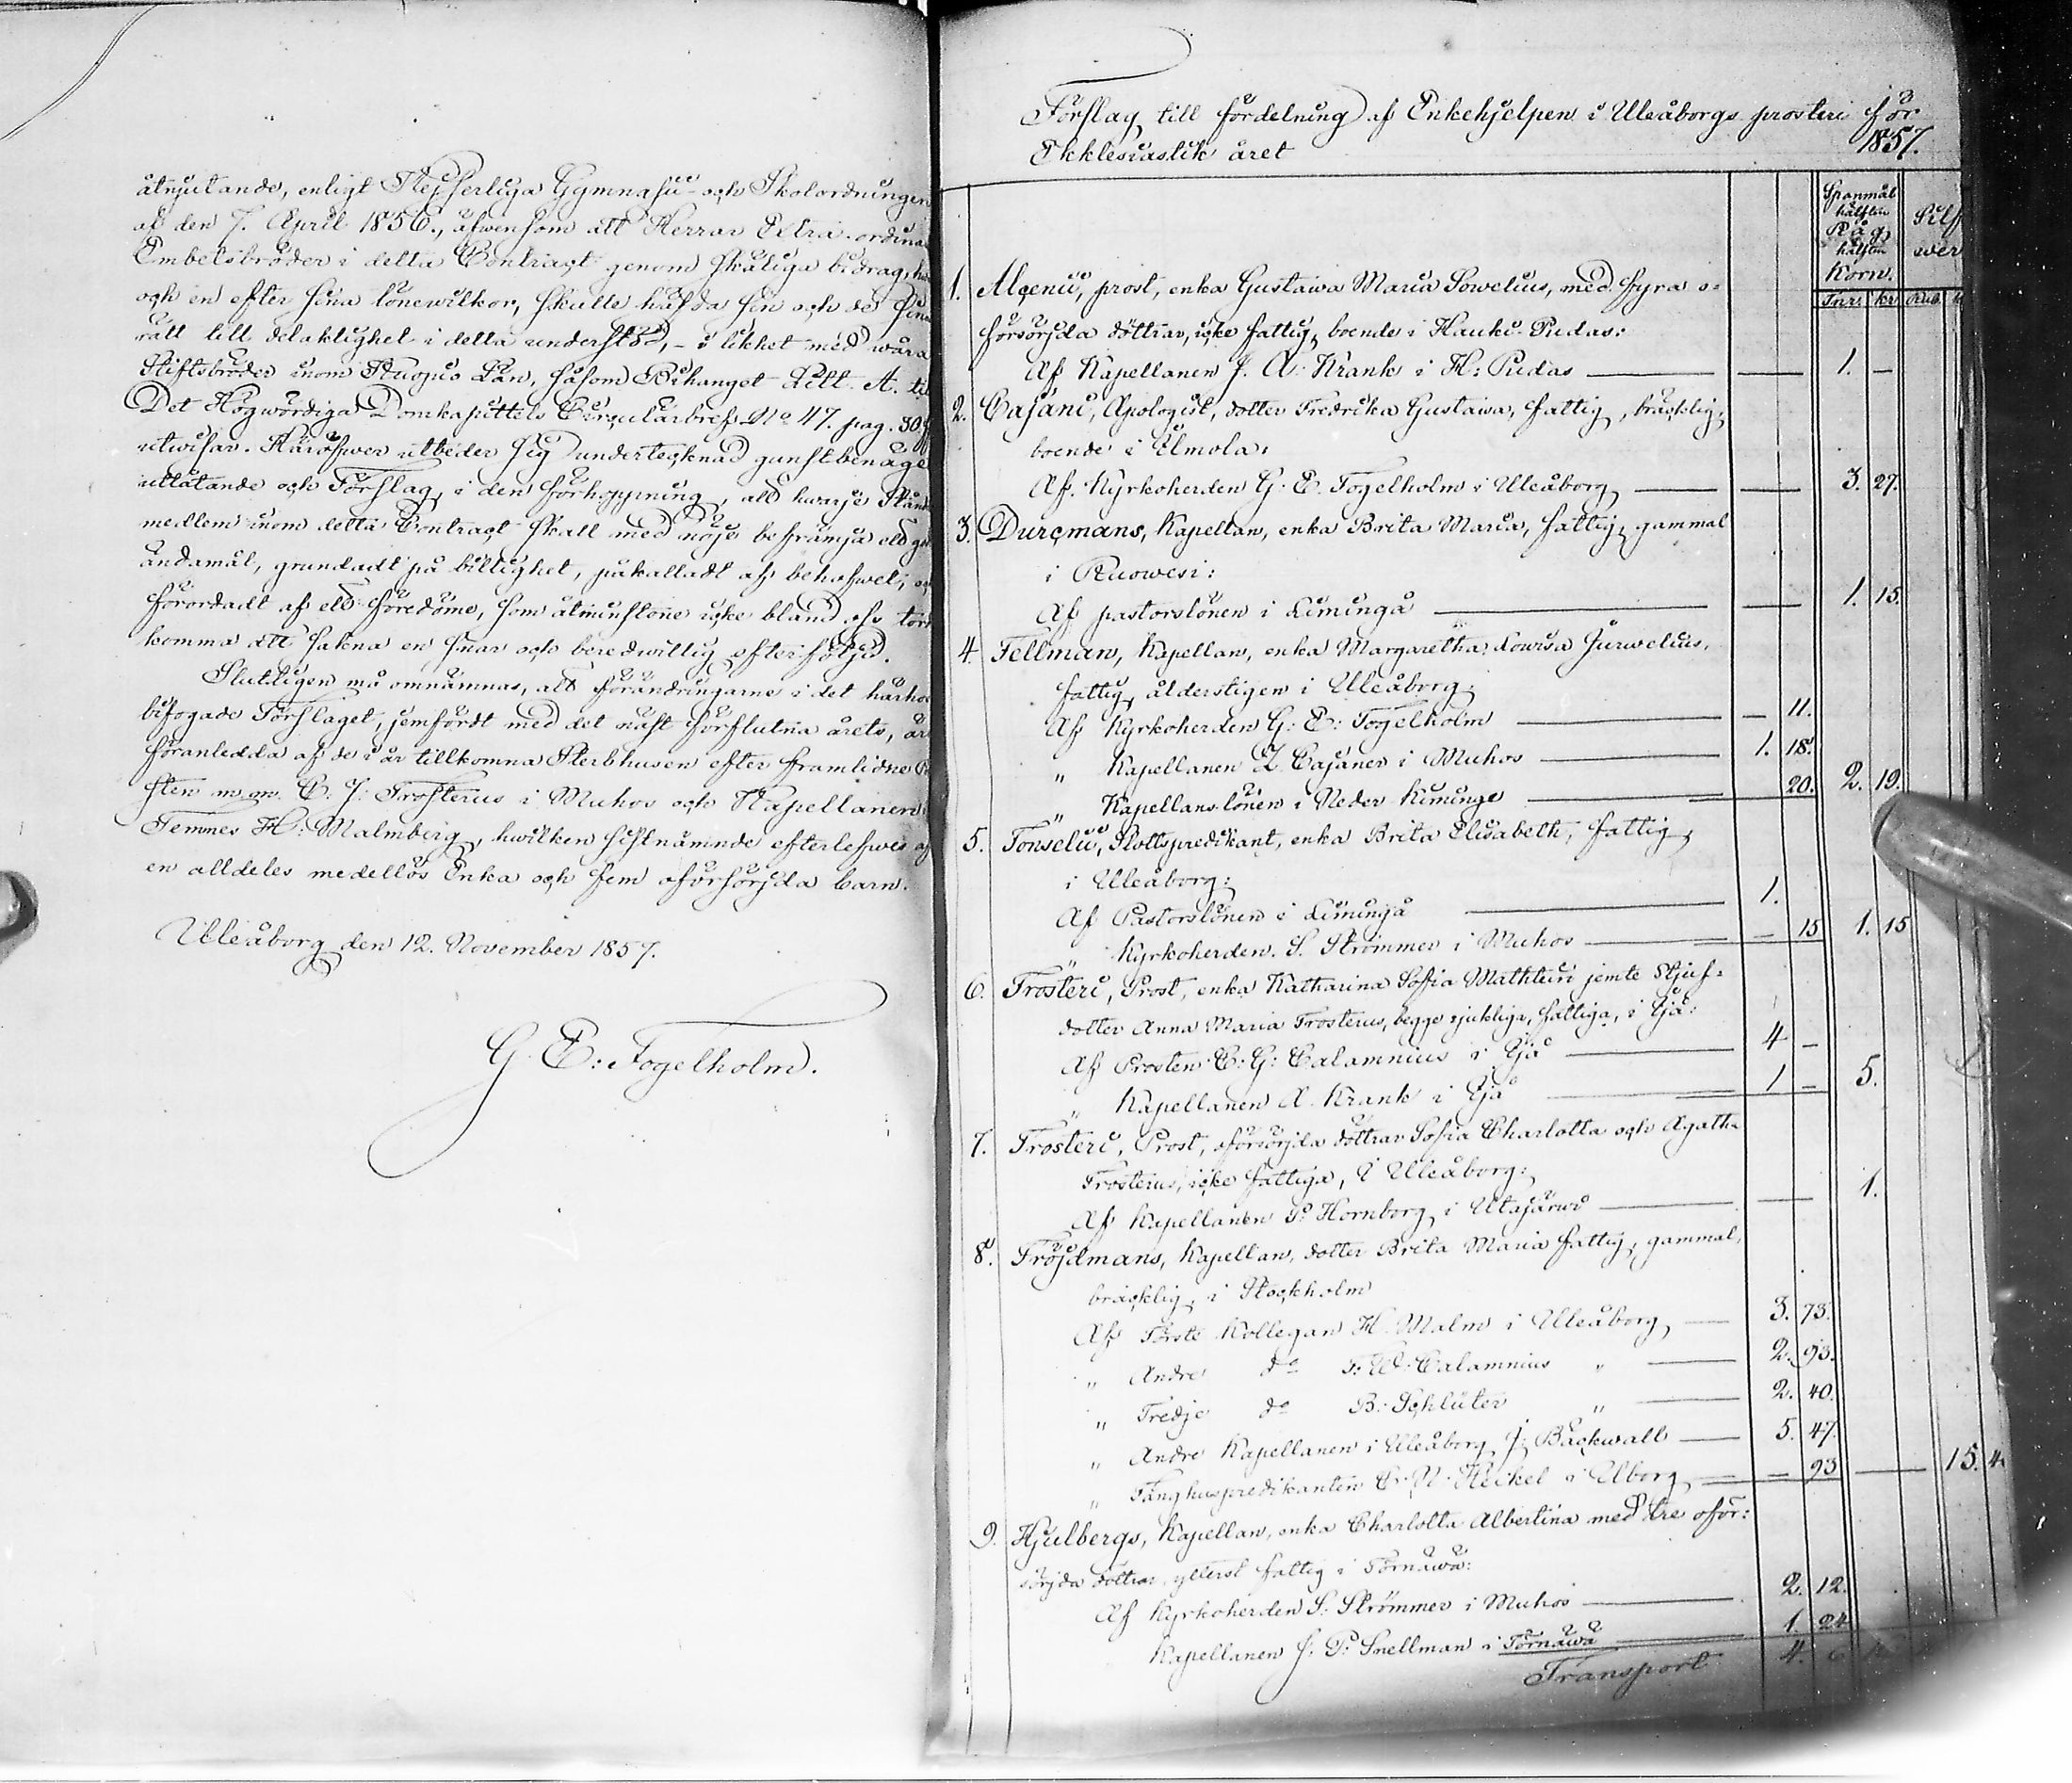 åtnjutande, enligt Kejserliga Gymnasii- och Skolordningen
af den 7. April 1856., äfwensom att Herrar Extra-ordina
Embetsbröder i detta Contract genom skäliga bidrag,
och en efter sina lönewilkor, skulle häfda sin och de sina
rätt till delaktighet i detta understöd, - i likhet med wåra
Stiftsbröder inom Kuopio Län, såsom Bihanget Litt. A. till
Det Högwördiga Domkapittels Circulärbref No 47. pag. 30.
utwisar. Häröfwer utbeder sig undertecknad gunstbenäget
utlåtande och Förslag, i den förhoppning, att hwarje Stånds
medlem inom detta Contract skall med nöje befrämja ett
ändamål, grundadt på billighet, påkalladt af behofwet,
förordadt af ett föredöme, som åtminstone icke bland oss torde
komma att sakna en snar och beredwillig efterföljd.
Slutligen må omnämnas, att förändringarne i det härhos
bifogade Förslaget, jemfördt med det näst förflutna årets, är
föranledda af de i år tillkomna Sterbhusen efter framlidne
sten m.m. C. J: Frosterus i Muhos och Kapellanen i
Temmes H: Malmberg, hwilken sistnämnde efterlefwes af
en alldeles medellös Enka och fem oförsörjda barn.
Uleåborg den 12. November 1857.
G. E: Fogelholm.
Förslag till fördelning af Enkehjelpen i Uleåborgs prosteri för
Ekklesiastik året 1857.
Spanmål hälften Råg hälften Korn. Silfwer
Tnr: kr Rub.
1. Alcenii, prost, enka Gustawa Maria Sowelius, med fyra o-
försörjda döttrar, icke fattig, boende i Hauki-Pudas:
Af Kapellanen J. A: Krank i H: Pudas 1. –
2. Cajani, Apologist, dotter Fredrika Gustawa, fattig, bräcklig,
boende i Ulmola:
Af Kyrkoherden G. E. Fogelholm i Uleåborg 3. 27.
3. Durcmans, Kapellan, enka Brita Maria, fattig, gammal
i Ruowesi:
Af pastorslönen i Limingå 1. 15.
4. Fellman, Kapellan, enka Margaretha Lowisa Jurwelius,
fattig, ålderstigen i Uleåborg:
Af Kyrkoherden G: E: Fogelholm – 11.
„ Kapellanen Z. Cajaner i Muhos 1. 18.
„ Kapellans-lönen i Neder Kiminge 20. 2. 19.
5. Fonselii, Slottspredikant, enka Brita Elisabeth, fattig,
i Uleåborg:
Af Pastorslönen i Limingå 1.
„ Kyrkoherden S. Strömmer i Muhos – 15 1. 15
6. Frosteri, Prost, enka Katharina Sofia Mathlin jemte Stjuf-
dotter Anna Maria Frosterus, begge sjukliga, fattiga, i Ijå:
Af Prosten C: G: Calamnius i Ijå 4 –
„ Kapellanen A. Krank i Ijå 1 – 5.
7. Frosteri, Prost, oförsörjda döttrar Sofia Charlotta och Agatha
Frosterus, icke fattiga, i Uleåborg:
Af Kapellanen P: Hornborg i Utajärwi 1.
8. Fröjdmans, Kapellan, dotter Brita Maria fattig, gammal,
bräcklig, i Stockholm
Af Förste Kollegan H. Malm i Uleåborg 3. 73.
„ Andre do F: W. Calamnius „ 2. 93.
„ Tredje do B: Schlüter „ 2. 40.
„ Andre Kapellanen i Uleåborg J: Bäckwall 5. 47.
„ Fånghuspredikanten C. N. Heikel i Ulborg – 93 15. 4
9. Hjulbergs, Kapellan, enka Charlotta Albertina med tre oför:
sörjda döttrar, ytterst fattig i Törnäwä:
Af Kyrkoherden S: Strömmer i Muhos 2. 12.
Kapellanen J: P: Snellman i Törnäwä 1. 24
Transport 4. 6